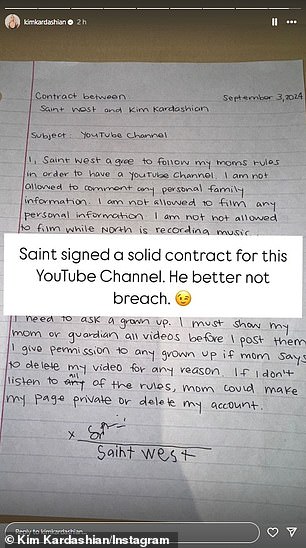 kimkardashian 2h
Contract between September 3, 2024
Saint West and Kim Kardashian
Subject: YouTube Channel
I, Saint West agree to follow my moms rules
in order to have a youTube channel. I am not
allowed to comment any personal family
information. I am not allowed to film any
personal information. I am not not allowed
to film while North is recording music.
Saint signed a solid contract for this
YouTube Channel. He better not
breach. 😉
I need to ask a grown up. I must show my
mom or guardian all videos before I post them
I give permission to any grown up if mom says
to delete my video for any reason. If I don't
listen to all of the rules, mom could make
my page private or delete my account.
x
Saint West
Reply to kimkardashian
© Kim Kardashian/Instagram